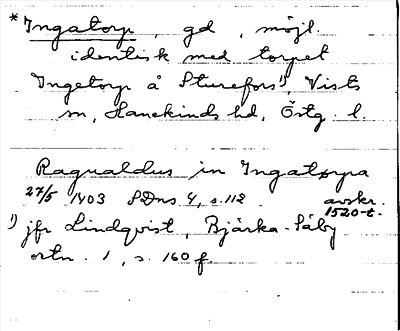 *Ingatorp, gd, möjl.
identisk med torpet
Ingetorp å Sturefors¹⁾, Vists
sn, Hanekinds hd, Östg. l.
Ragualdus in Ingatorpa
27/5 1403 SDns 4, s. 112 avskr.
1520-t.
¹⁾ jfr Lindqvist, Bjärka-Säby
ortn. 1, s. 160 f.